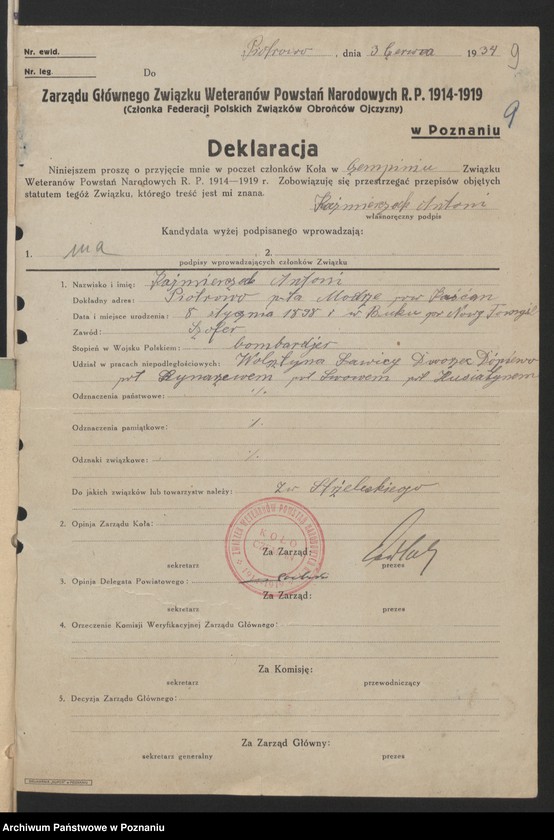 Nr. ewid.
Piotrowo, dnia 3 Czerwca 1934
9
Nr. leg.
Do
Zarządu Głównego Związku Weteranów Powstań Narodowych R. P. 1914-1919
(Członka Federacji Polskich Związków Obrońców Ojczyzny)
w Poznaniu
9
Deklaracja
Niniejszem proszę o przyjęcie mnie w poczet członków Koła w Czempiniu Związku
Weteranów Powstań Narodowych R. P. 1914—1919 r. Zobowiązuję się przestrzegać przepisów objętych
statutem tegóż Związku, którego treść jest mi znana.
Kaźmierczak Antoni
własnoręczny podpis
Kandydata wyżej podpisanego wprowadzają:
1. 2.
podpisy wprowadzających członków Związku
1. Nazwisko i imię: Kaźmierczak Antoni
Dokładny adres: Piotrowo p-ta pow Kościan
Data i miejsce urodzenia: 8 stycznia 1898 r w Buku pow Nowy Tomyśl
Zawód: Szofer
Stopień w Wojsku Polskiem: bombardjer
Udział w pracach niepodległościowych: Wolsztyna Ławicy Dopiewo
pod Rynarzewem pod Lwowem pod Husiatynem
Odznaczenia państwowe: ./.
Odznaczenia pamiątkowe: ./.
Odznaki związkowe: ./.
Do jakich związków lub towarzystw należy: Zw Strzeleckiego
2. Opinja Zarządu Koła:
ZWIĄZEK WETERANÓW POWSTAŃ NARODOWYCH
KOŁO
Za Zarząd:
sekretarz prezes
3. Opinja Delegata Powiatowego:
Za Zarząd:
sekretarz prezes
4. Orzeczenie Komisji Weryfikacyjnej Zarządu Głównego:
Za Komisję:
sekretarz przewodniczący
5. Decyzja Zarządu Głównego:
Za Zarząd Główny:
sekretarz generalny prezes
Archiwum Państwowe w Poznaniu